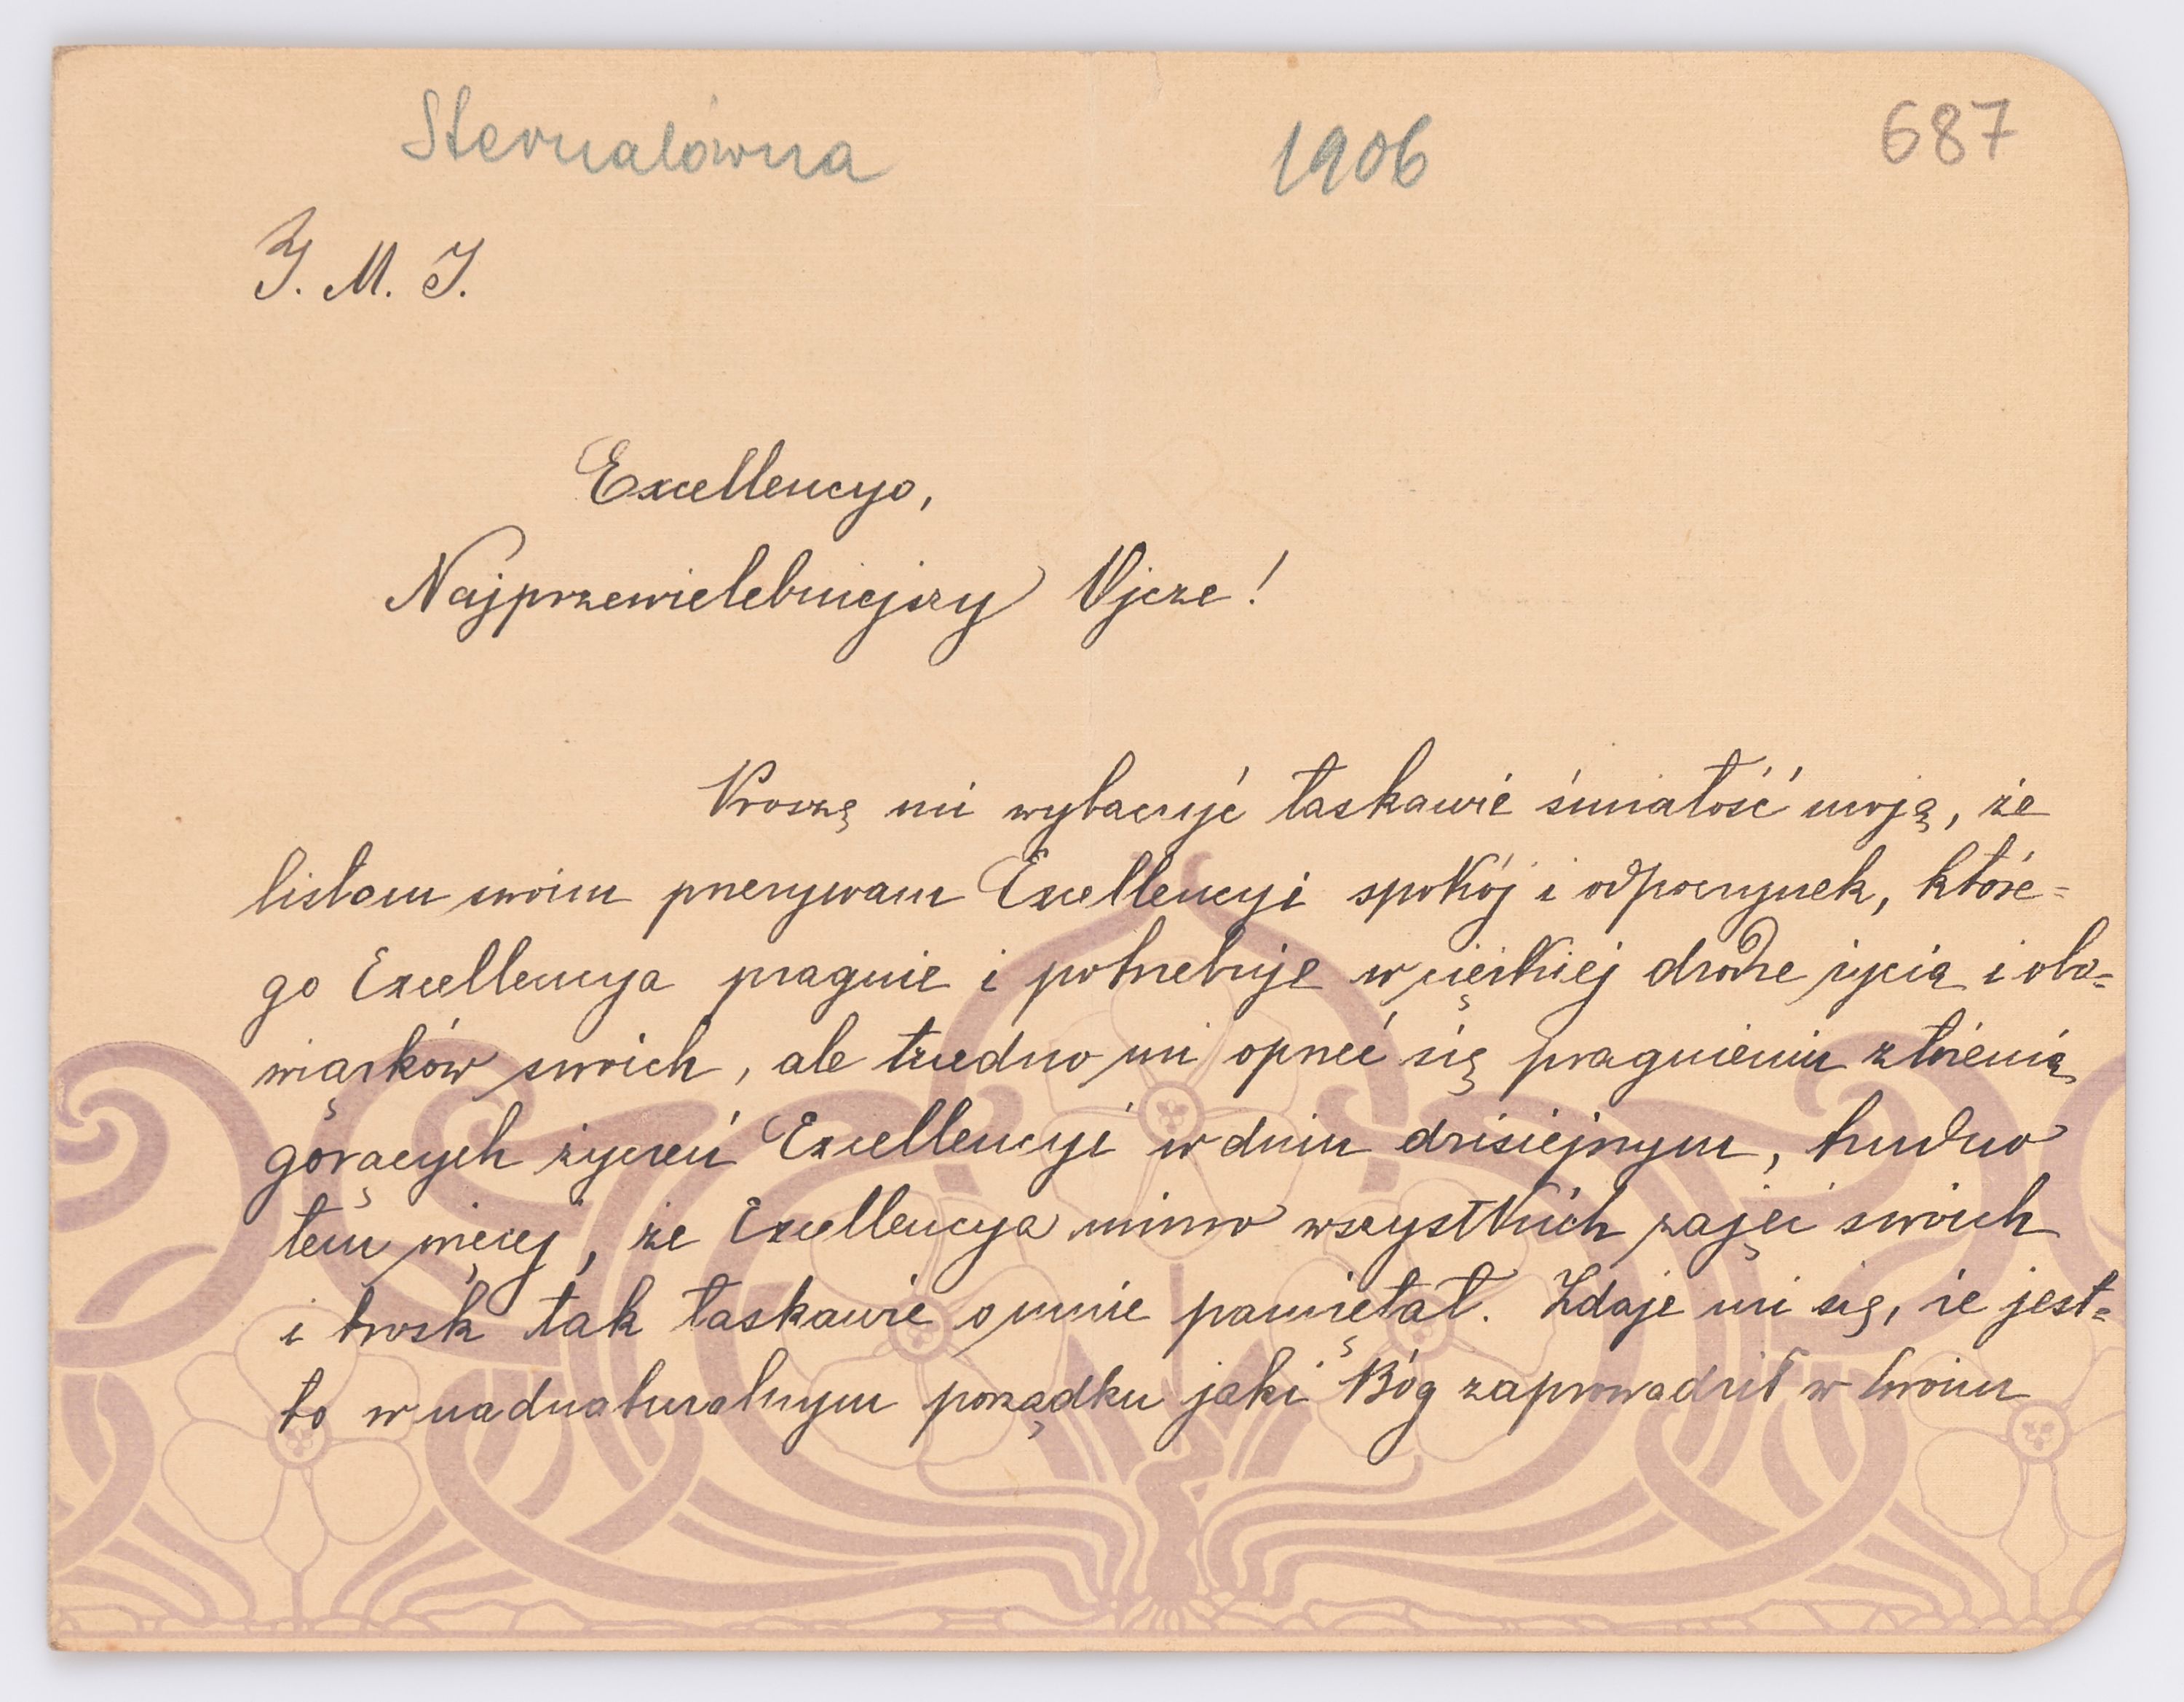 Sternalówna 1906 687
J. M. J.
Excellencyo,
Najprzewielebniejszy Ojcze!
Proszę mi wybaczyć łaskawie śmiałość moją, że
listem swoim przerywam Excellencyi spokój i odpoczynek, które=
go Excellencya pragnie i potrzebuje w ciężkiej drodze życia i obo=
wiązków swoich, ale trudno mi oprzeć się pragnieniu złożenia
gorących życzeń Excellencyi w dniu dzisiejszym, trudno
tem więcej, że Excellencya mimo wszystkich zajęć swoich
i trosk tak łaskawie o mnie pamiętał. Zdaje mi się, że jest=
to w nadnaturalnym porządku jaki Bóg zaprowadził w swoim